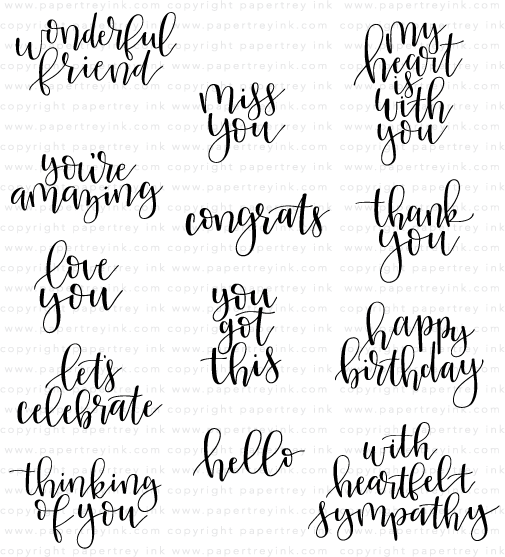 wonderful
friend
you're
amazing
love
you
let's
celebrate
thinking
of you
miss
you
congrats
you
got
this
hello
my
heart
is
with
you
thank
you
happy
birthday
with
heartfelt
sympathy
www.papertreyink.com
copyright papertrey ink